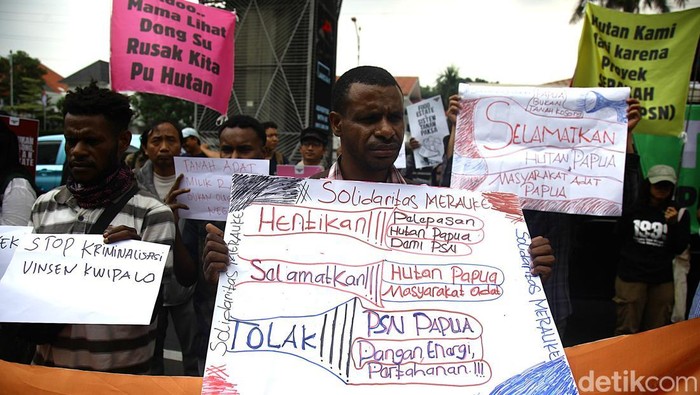 Mama Lihat
Dong Su
Rusak Kita
Pu Hutan
Hutan Kami
karena
Proyek
(PSN)
SELAMATKAN
HUTAN PAPUA
MASYARAKAT ADAT
PAPUA
TANAH ADAT
MILIK
STOP KRIMINALISASI
VINSEN KWIPALO
Solidaritas MERAUKE
HENTIKAN!!!
Pelepasan
Hutan Papua
Demi PSN
Salamatkan!!!
Hutan Papua
Masyarakat Adat
TOLAK!!!!
PSN PAPUA
Pangan, Energi,
Pertahanan.!!!
Solidaritas MERAUKE
Solidaritas MERAUKE
detikcom